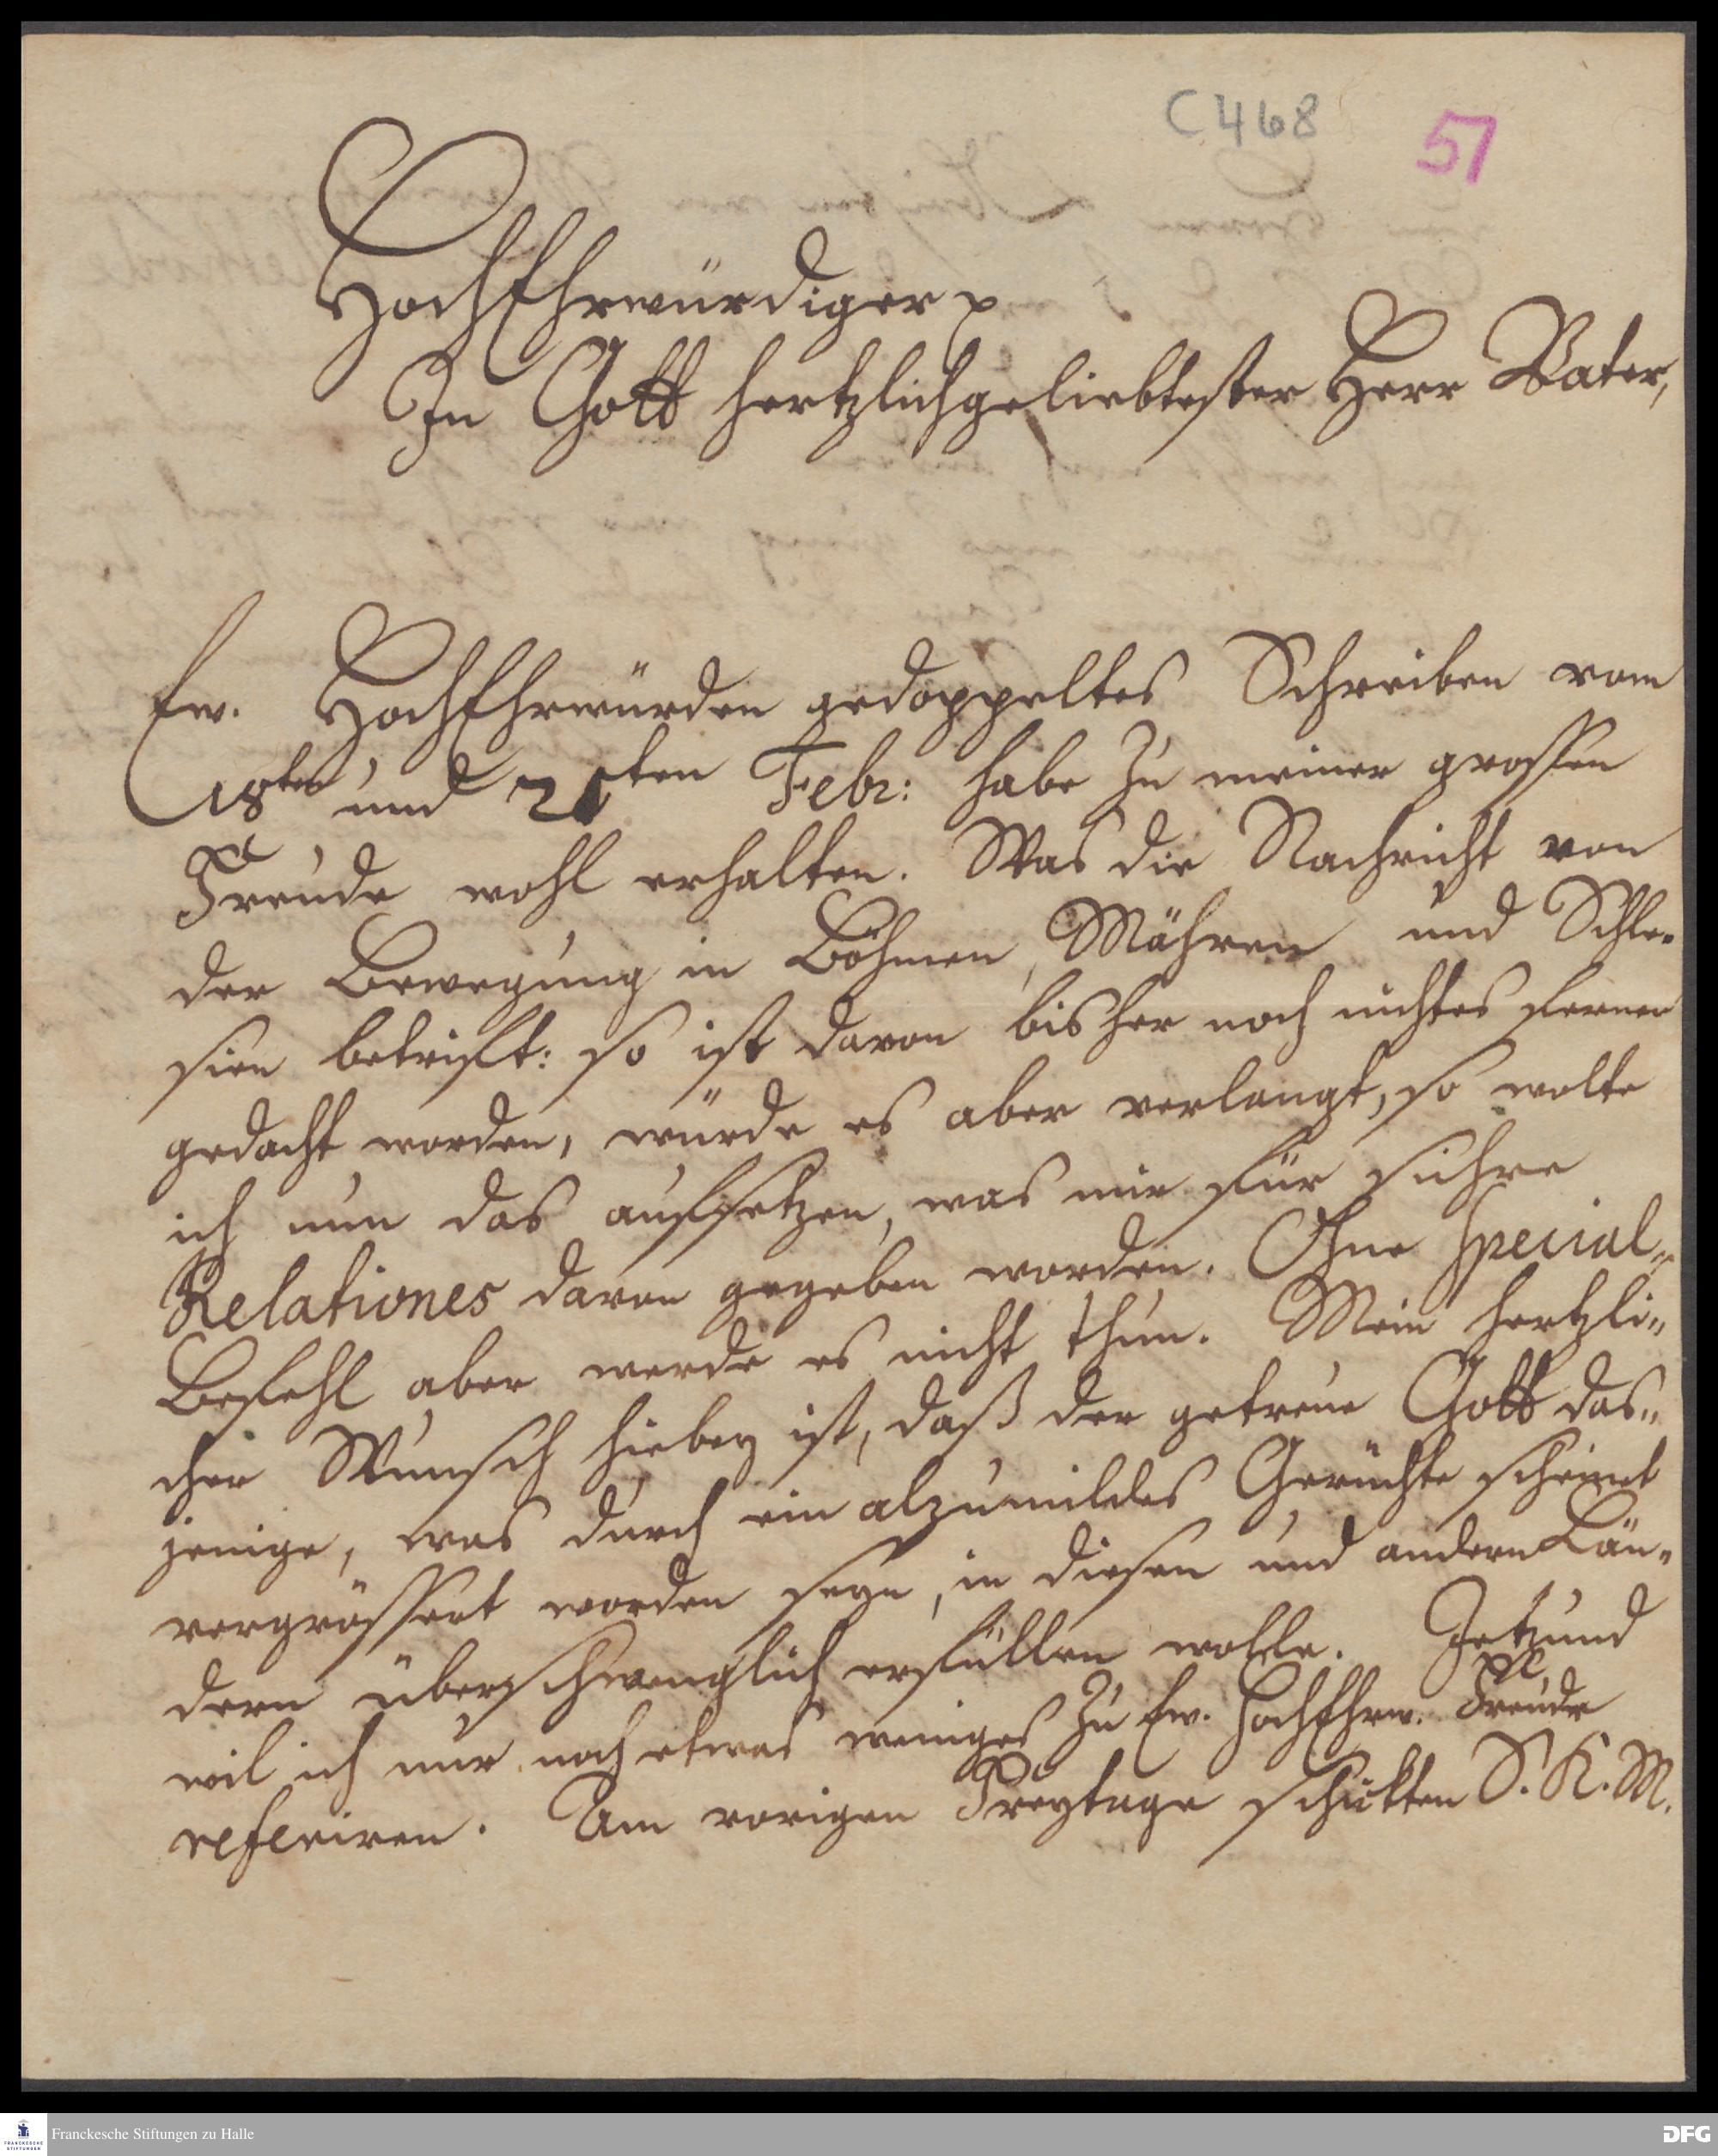 C 468
51
HochEhrwürdiger p
In Gott hertzlichgeliebtester Herr Vater,
Ew. HochEhrwürden gedoppeltes Schreiben vom
18ten und 21ten Febr: habe zu meiner grossen
Freude wohl erhalten. Was die Nachricht von
der Bewegung in Böhmen, Mähren und Schle-
sien betrifft: so ist davon bisher noch nichtes ferner
gedacht worden, würde es aber verlangt, so wolte
ich nun das auffsetzen, was mir für sichre
Relationes davon gegeben worden. Ohne Special-
Befehl aber werde es nicht thun. Mein hertzli-
cher Wunsch hiebey ist, daß der getreue Gott das-
jenige, was durch ein alzumildes Gerüchte scheinet
vergrössert worden seyn, in diesen und andern Län-
dern überschwenglich erfüllen wolle. Jetzund
wil ich nur noch etwas weniges zu Ew. HochEhrw. Freude
referiren. Am vorigen Freytage schickten S. K. M.
Franckesche Stiftungen zu Halle
FRANCKESCHE
STIFTUNGEN
DFG